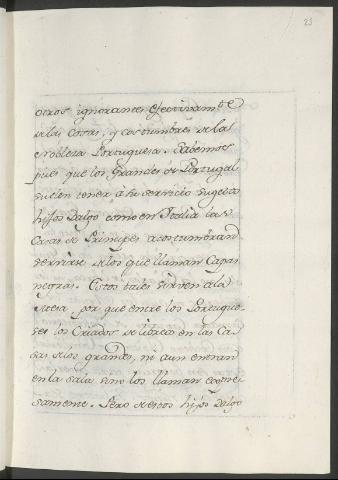 23
otros ignorantes efectivam.te
de las Cosas, y costumbres de la
Nobleza Portuguesa. Sabemos
pues que los Grandes de Portugal
suelen tener à su servicio sugetos
hijos Dalgo como en Italia las
Casas de Principes acostumbran
servirse de los que llaman Capas
negras. Estos tales sirven a la
por que entre los Portugue-
ses los Criados de librea en las Ca-
sas de los grandes, ni aun entran
en la sala sino los llaman
samente. Pero destos hijos Dalgo